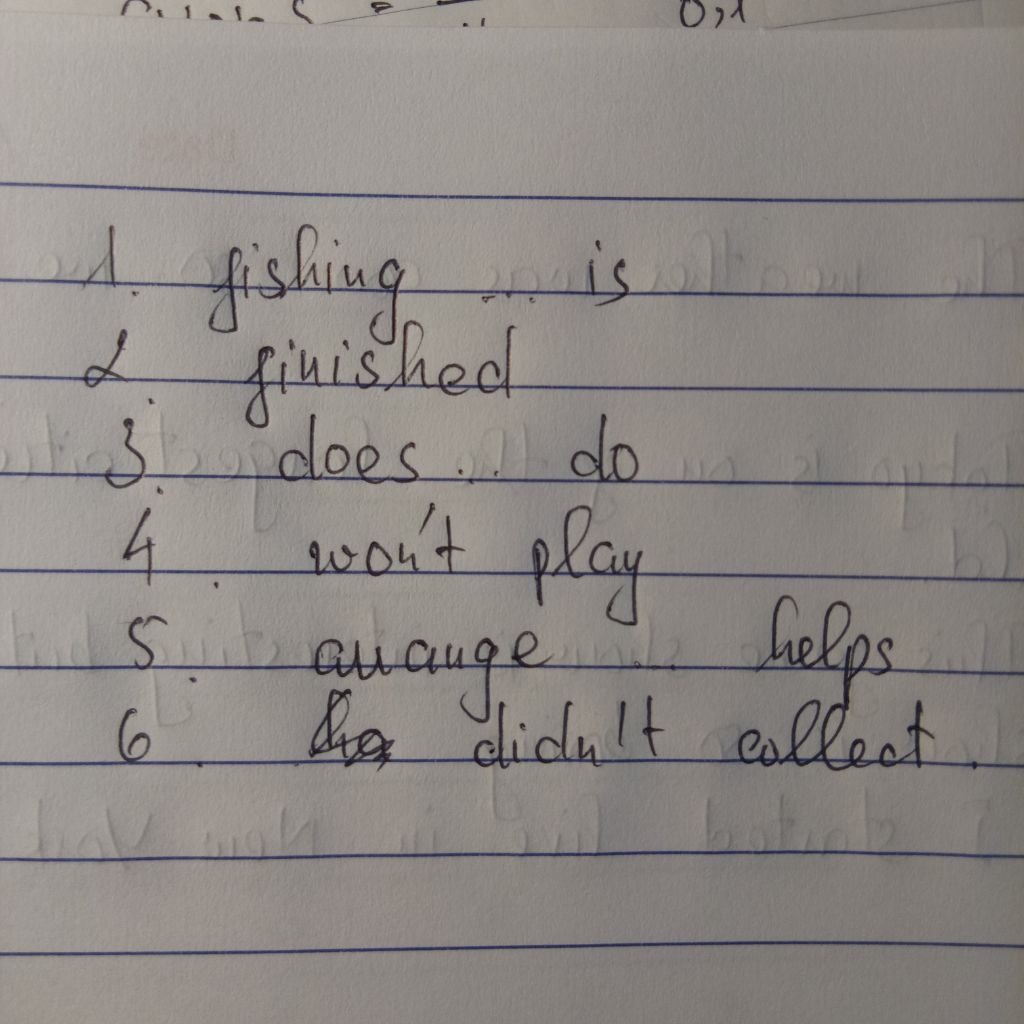 1. fishing ... is
2. finished
3. does ... do
4. won't play
5. arrange ... helps
6. didn't collect.